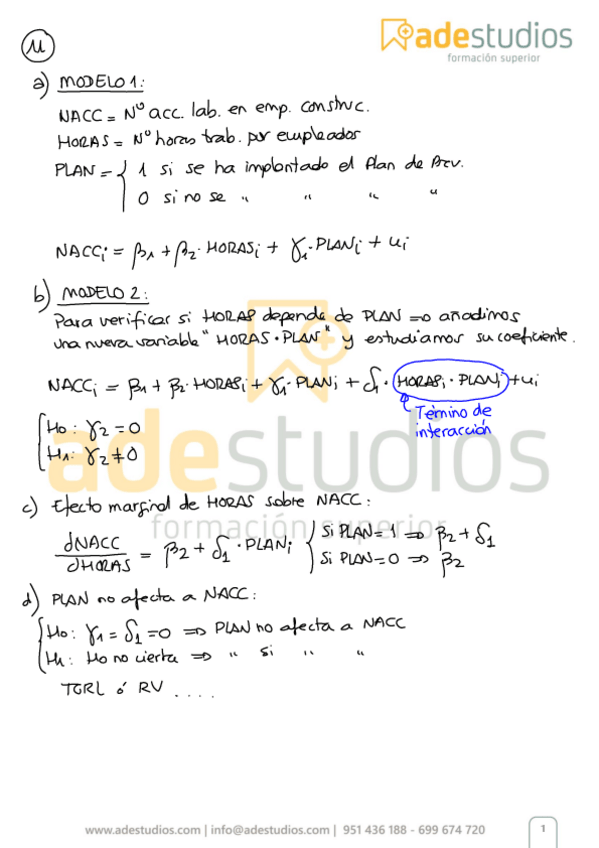 11
adestudios
formación superior
a) MODELO 1:
NACC = Nº acc. lab. en emp. construc.
HORAS = Nº horas trab. por empleados
PLAN = { 1 si se ha implantado el Plan de Prev.
0 si no se " " " "
NACCi = β1 + β2·HORASi + γ1·PLANi + ui
b) MODELO 2:
Para verificar si HORAS depende de PLAN => añadimos
una nueva variable "HORAS·PLAN" y estudiamos su coeficiente.
NACCi = β1 + β2·HORASi + γ1·PLANi + δ1·(HORASi·PLANi) + ui
Término de
interacción
{ H0: γ2 = 0
H1: γ2 ≠ 0
adestudios
formación superior
c) Efecto marginal de HORAS sobre NACC:
dNACC/dHORAS = β2 + δ1·PLANi { Si PLAN=1 => β2 + δ1
Si PLAN=0 => β2
d) PLAN no afecta a NACC:
{ H0: γ1 = δ1 = 0 => PLAN no afecta a NACC
H1: H0 no cierta => " si " "
TGRL ó RV ....
www.adestudios.com | info@adestudios.com | 951 436 188 - 699 674 720
1